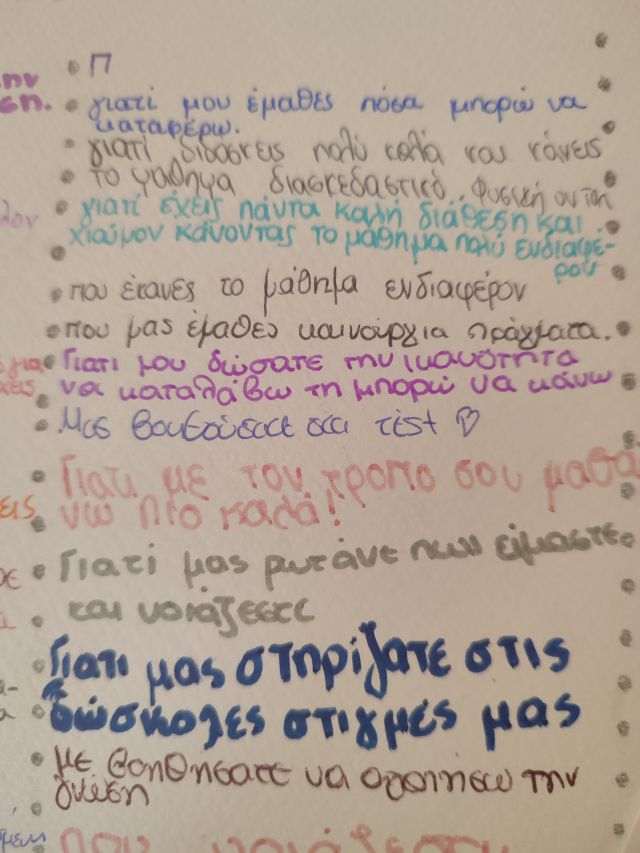 Π
ην
ση.
γιατί μου έμαθες πόσα μπορώ να
καταφέρω.
γιατί διδάσκεις πολύ καλά και κάνεις
το μάθημα διασκεδαστικό.. Φυσική αυτή
γιατί έχεις πάντα καλή διάθεση και
χιούμορ κάνοντας το μάθημα πολύ ενδιαφέ-
ρον
που έκανες το μάθημα ενδιαφέρον
που μας έμαθες καινούργια πράγματα.
Γιατι μου δώσατε την ικανότητα
να καταλάβω τη μπορώ να κάνω
Μας βοηθούσατε στα τέst ♡
Γιατι με τον τροπο σου μαθα
νω πιο καλά!
εις
Γιατί μας ρωτάνε πως είμαστε
και νοιάζεστε
Γιατι μας στηρίζατε στις
δώσκολες στιγμές μας
με βοηθησατε να αγαπήσω την
γνώση